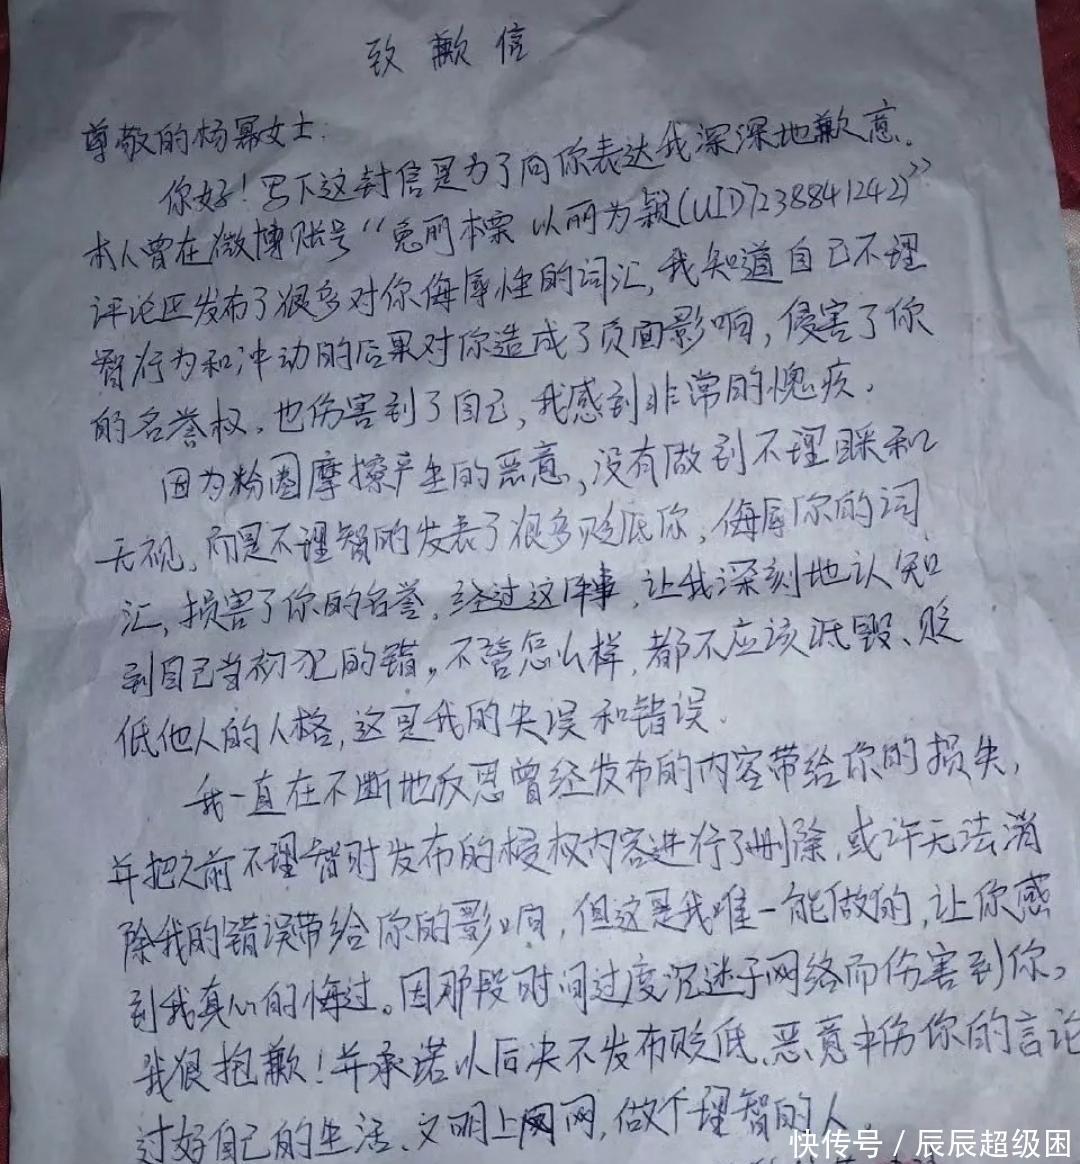 致歉信
尊敬的杨幂女士:
你好!写下这封信是为了向你表达我深深地歉意。
本人曾在微博账号“兔丽本票 以丽为颖(UID7238841242)”
评论区发布了很多对你侮辱性的词汇,我知道自己不理
智行为和冲动的后果对你造成了负面影响,侵害了你
的名誉权,也伤害到了自己,我感到非常的愧疚.
因为粉圈摩擦产生的恶意,没有做到不理睬和
无视,而是不理智的发表了很多贬低你,侮辱你的词
汇,损害了你的名誉。经过这件事,让我深刻地认知
到自己当初犯的错。不管怎么样,都不应该诋毁、贬
低他人的人格,这是我的失误和错误.
我一直在不断地反思曾经发布的内容带给你的损失,
并把之前不理智时发布的侵权内容进行了删除,或许无法消
除我的错误带给你的影响,但这是我唯一能做的,让你感
到我真心的悔过。因那段时间过度沉迷于网络而伤害到你,
我很抱歉!并承诺以后决不发布贬低、恶意中伤你的言论
过好自己的生活、文明上网,做个理智的人.
快传号/辰辰超级困